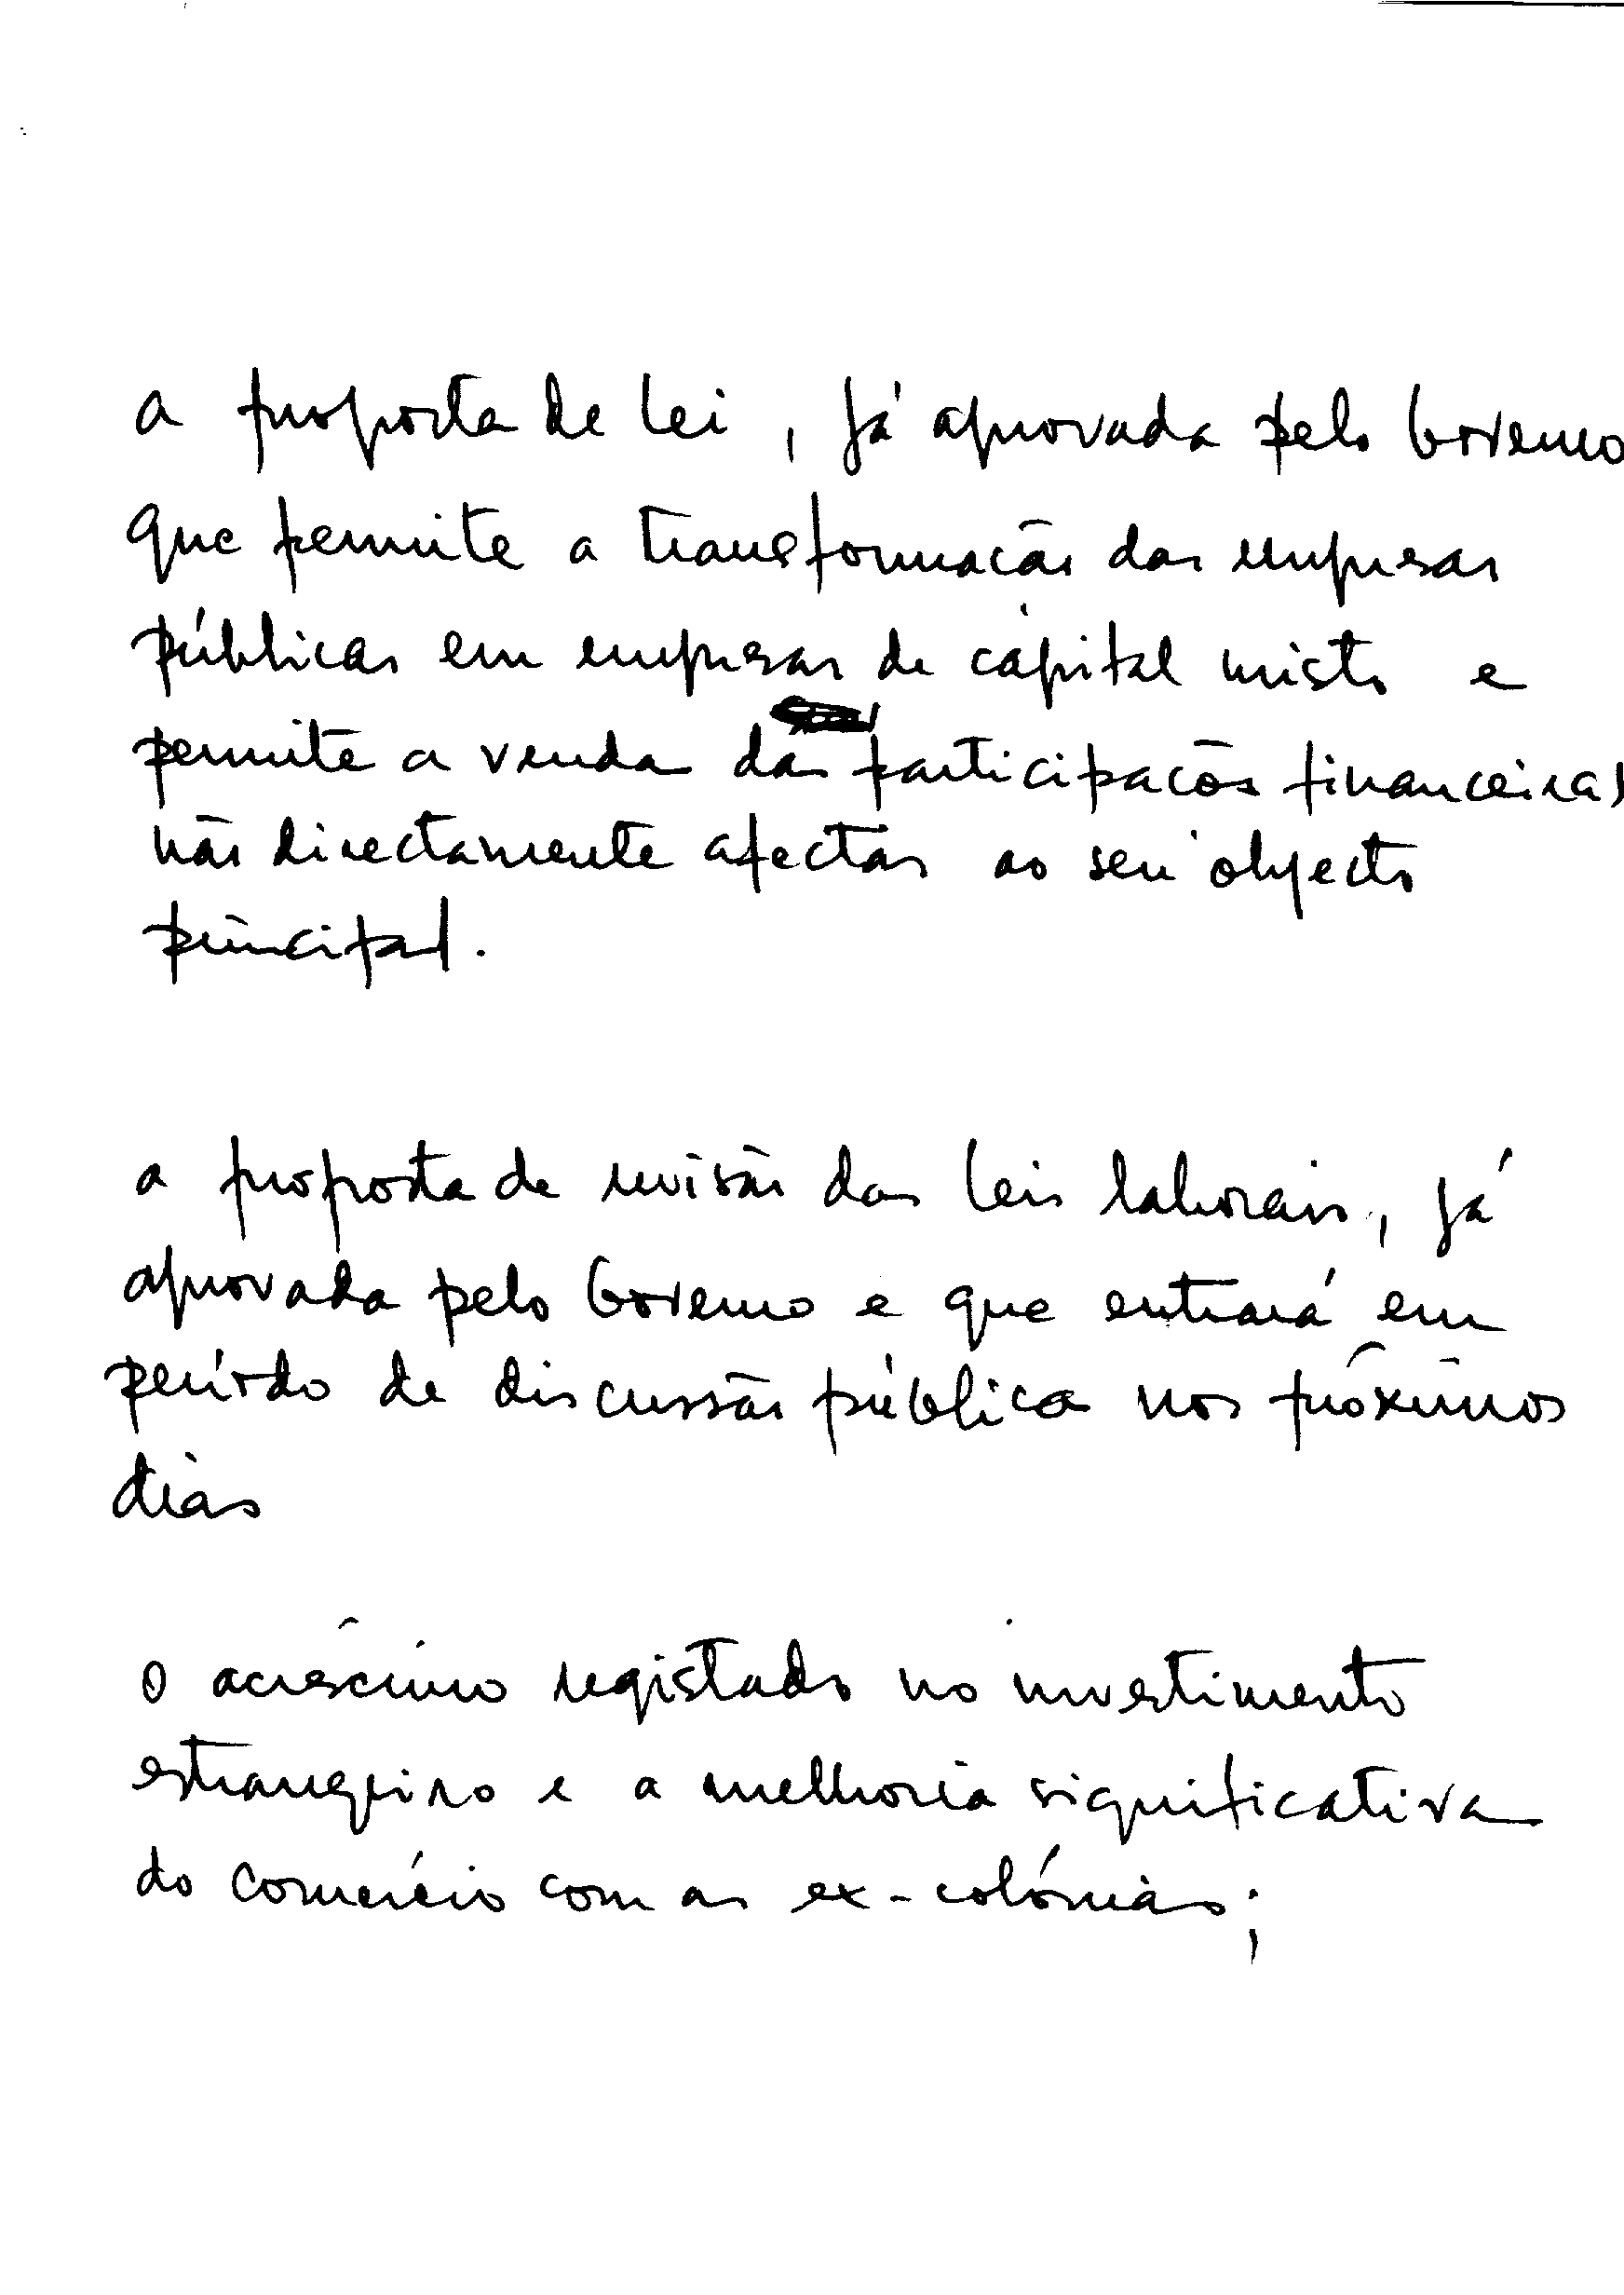 a proposta de lei, já aprovada pelo Governo
que permite a transformação das empresas
públicas em empresas de capital misto e
permite a venda das participações financeiras
não directamente afectas ao seu objecto
principal.
a proposta de revisão das leis laborais, já
aprovada pelo Governo e que entrará em
período de discussão pública nos próximos
dias
o acréscimo registado no investimento
estrangeiro e a melhoria significativa
do comércio com as ex-colónias;